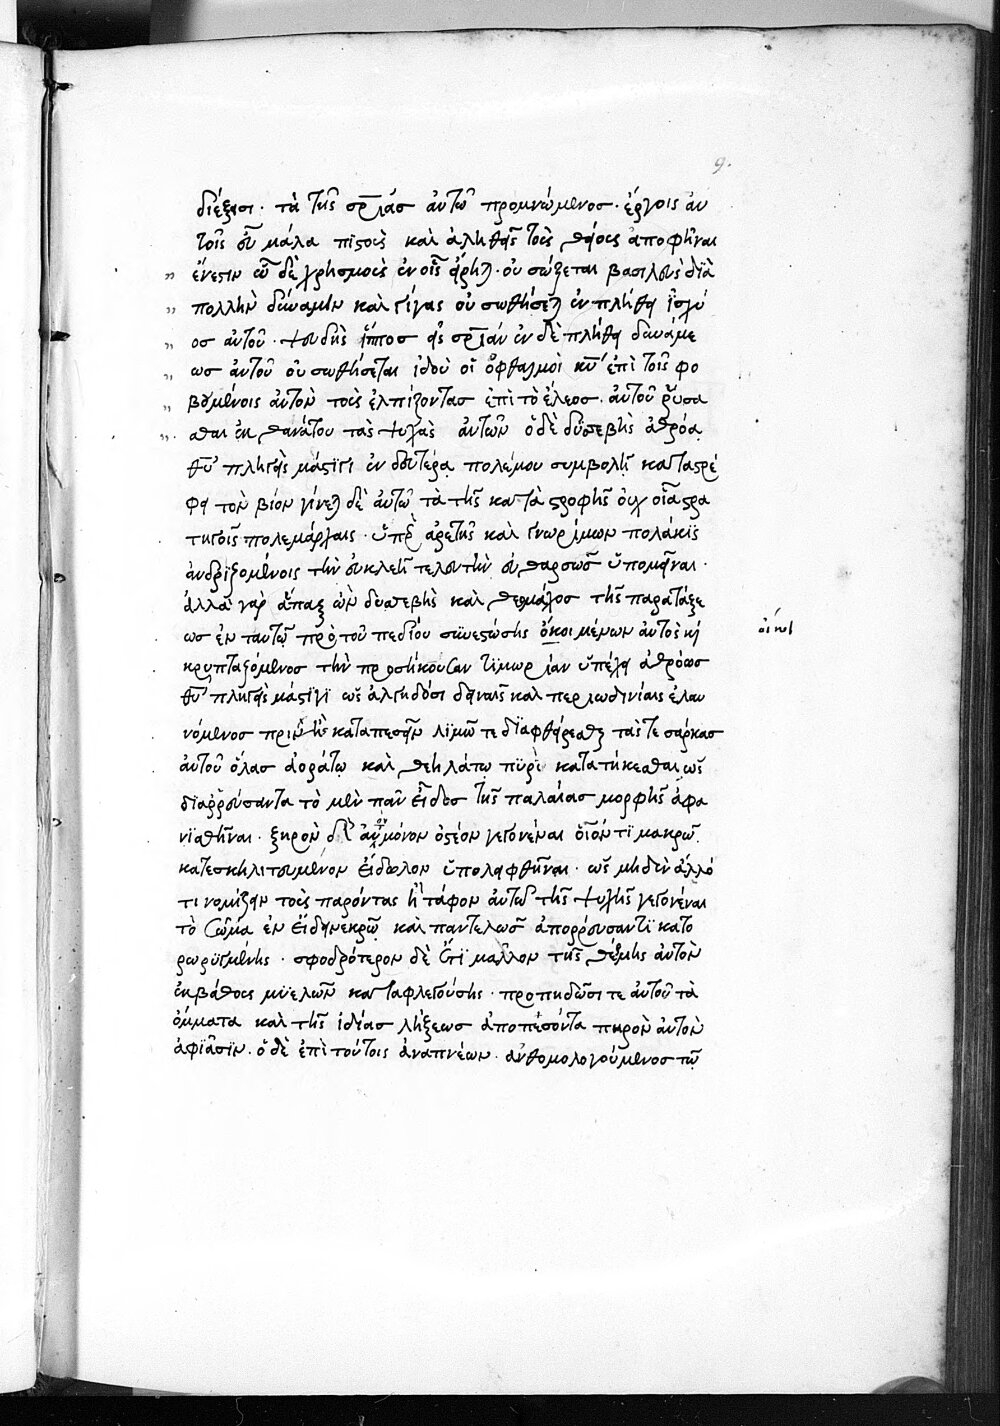 9.
διέξεισι · τὰ τῆς σρ̅ιάσ αὐτῶ προμνώμενοσ · ἔργοις αὐ
τοῖς οὖ μάλα πιστοὺς καὶ ἀληθεῖς τοὺς θείους ἀποφῆναι
ἔνεστιν οὓ δὲ χρησμοὺς ἐν οἷς εἴρηται · οὐ σώζεται βασιλεὺς διὰ
πολλὴν δύναμιν καὶ γίγας οὐ σωθήσεται ἐν πλήθει ἰσχύ
οσ αὐτοῦ · ψευδὴς ἵππος εἰς σρ̅ιάν ἐν δὲ πλήθει δυνάμε
ωσ αὐτοῦ οὐ σωθήσεται ἰδοὺ οἱ ὀφθαλμοὶ κ̅υ ἐπὶ τοῖς φο
βουμένοις αὐτὸν τοὺς ἐλπίζοντασ ἐπὶ τὸ ἔλεοσ · αὐτοῦ ῥύσα
σθαι ἐκ θανάτου τὰς ψυχὰς αὐτῶν ὁ δὲ δυσσεβὴς ἀθρόα
θ̅υ πληγεὶς μάστιγι ἐν δευτέρα πολέμου συμβολῆ καταστρέ
φει τὸν βίον γίνεται δὲ αὐτῶ τὰ τῆς καταστροφῆς οὐχ οἷα στρα
τηγοῖς πολεμάρχαις · ὑπὲρ ἀρετῆς καὶ γνωρίμων πολάκις
ἀνδριζομένοις τὴν εὐκλεῆ τελευτὴν εὐθαρσῶς ὑπομεῖναι ·
ἀλλὰ γὰρ ἅπαξ ὢν δυσσεβὴς καὶ θεομάχος τῆς παρατάξε
ωσ ἐν ταυτῶ πρὸ τοῦ πεδίου συνεστώσης ὄκοι μένων αὐτὸς κ
οἴκοι
κρυπταζόμενοσ τὴν προσήκουσαν τιμωρίαν ὑπέχει ἀθρόωσ
θ̅υ πληγεὶς μάστιγι ὡς ἀλγηδόσι δειναῖς καὶ περιωδινίαις ἐλαυ
νόμενοσ πρινῆς καταπεσεῖν λιμῶ τε διαφθείρεσθαι τάς τε σάρκασ
αὐτοῦ ὅλασ ἀοράτω καὶ θεηλάτω πυρὶ κατατήκεσθαι ὡς
διαρρεύσαντα τὸ μὲν πᾶν εἶδοσ τῆς παλαιᾶς μορφῆς ἀφα
νισθῆναι · ξηρὸν δὲ αὐτὸ μόνον ὀστέον γεγονέναι οἷόν τι μακρῶ
κατεσκηλιτευμένον εἴδωλον ὑπολειφθῆναι · ὡς μηδὲν ἄλλό
τι νομίζειν τοὺς παρόντας ἢ τάφον αὐτῶ τῆς ψυχῆς γεγονέναι
τὸ σῶμα ἐν εἴδει νεκρῶ καὶ παντελῶς ἀπορρεύσαντι κατο
ρωρυγμένης · σφοδρότερον δὲ ἔτι μᾶλλον τῆς θέρμης αὐτὸν
ἐκ βάθους μυελῶν καταφλεγούσης · προπηδῶσι τε αὐτοῦ τὰ
ὄμματα καὶ τῆς ἰδίασ λήξεωσ ἀποπεσόντα πηρὸν αὐτὸν
ἀφίασιν · ὁ δὲ ἐπὶ τούτοις ἀναπνέων · ἀνθομολογούμενοσ τῶ